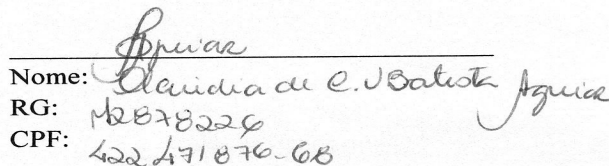 Aguiar
Nome: Claudia de C. V Batista Aguiar
RG: M2878226
CPF: 422 471 876-68